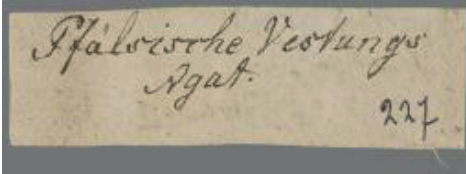 Pfälsische Vestungs
Agat.
227